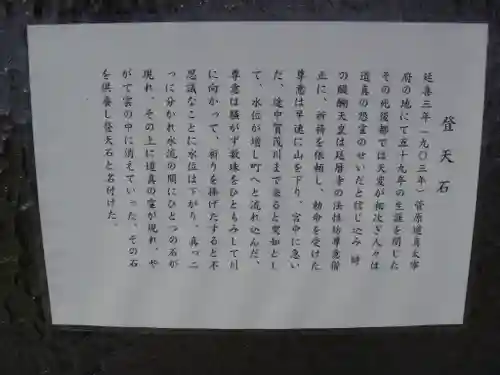 登天石
延喜三年(一九〇三年)菅原道真太宰
府の地にて五十九年の生涯を閉じた
その死後都では天変が相次ぎ人々は
道真の怨霊のせいだと信じ込み 時
の醍醐天皇は延暦寺の法性坊尊意僧
正に、祈祷を依頼し、勅命を受けた
尊意は早速に山を下り、宮中に急い
だ、途中賀茂川まで来ると突如とし
て、水位が増し町へと流れ込んだ、
尊意は騒がず数珠をひともみして川
に向かって、祈りを捧げたすると不
思議なことに水位は下がり、真っ二
つに分かれ水流の間にひとつの石が
現れ、その上に道真の霊が現れ、や
がて雲の中に消えていった、その石
を供養し登天石と名付けた。